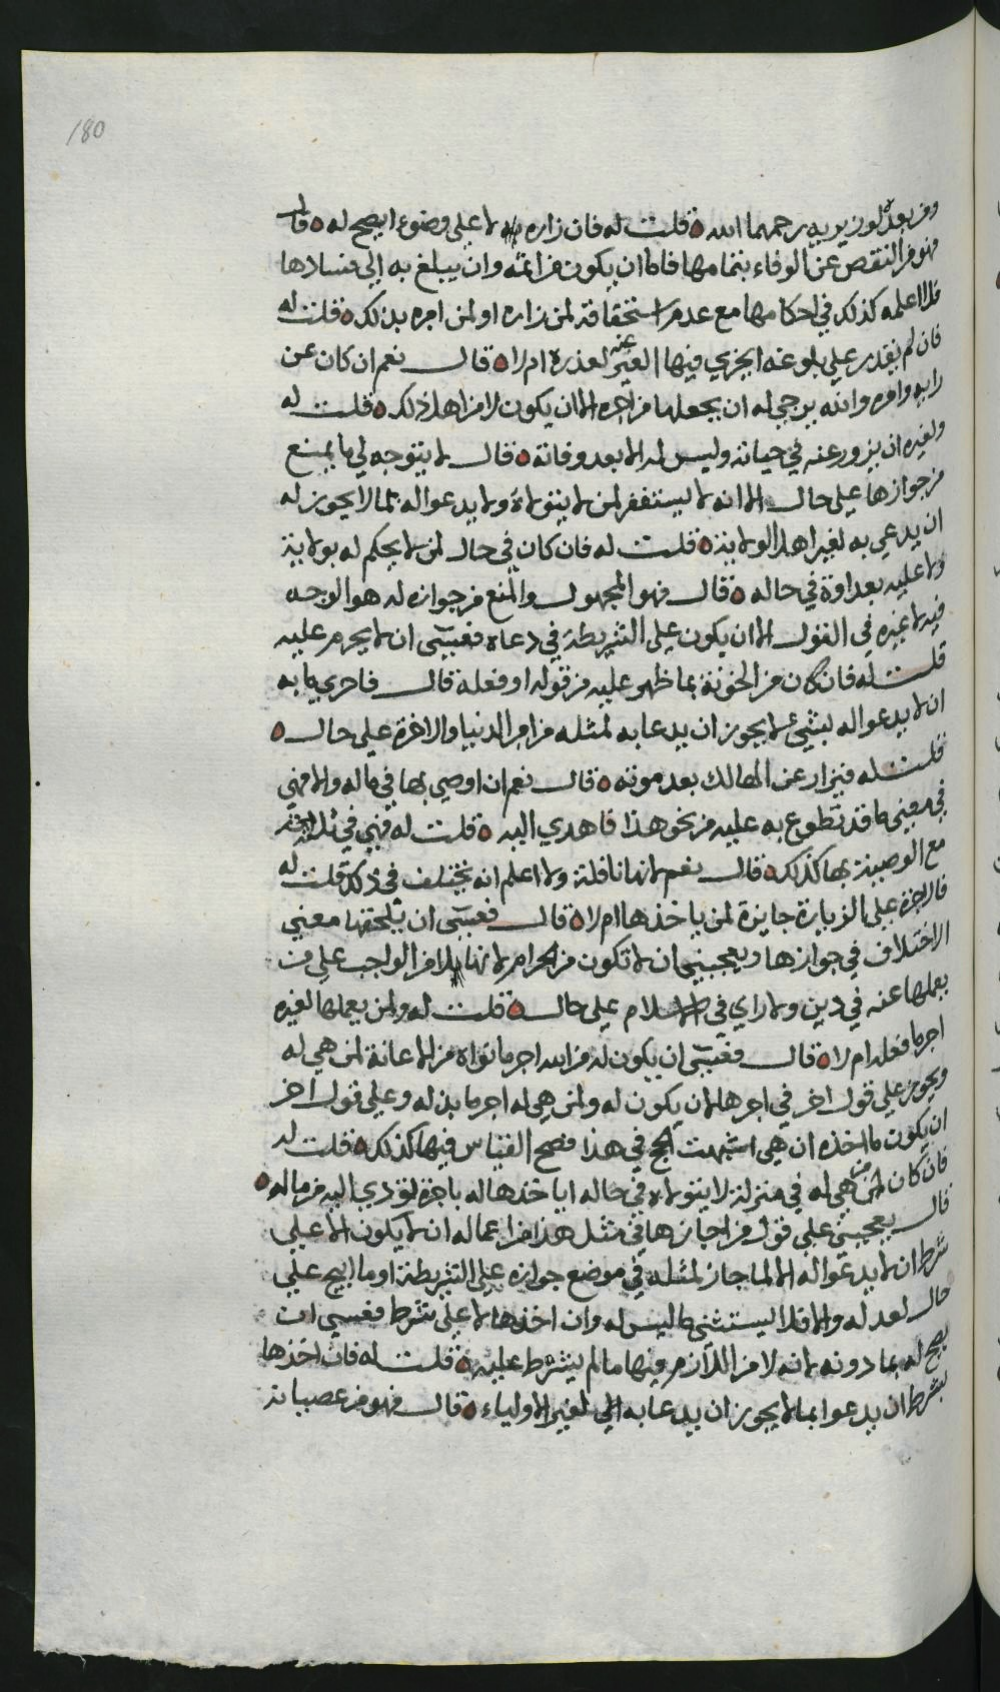 180
ومن بعده لوزيريه رحمهما الله ه قلت له فان زاره لا على وضوء ايصح له ه قال
فهو من النقص عن الوفاء بتمامها فاما ان يكون من اثمه وان يبلغ به الى فسادها
فلا اعلمه كذلك في احكامها مع عدم استحقاقه لمن زاره او لمن امره بذلك ه قلت له
فان لم يقدر على بلوغه ايجزي فيها الغير عنه لعذره ام لا ه قال نعم ان كان عن
رايه وامره والله يرجى له ان يجعلها من اجره الا ان يكون لا من اهل ذلك ه قلت له
ولغيره ان يزور عنه في حياته وليس له الا بعد وفاته ه قال لا يتوجه لي ما يمنع
من جوازها على حال الا انه لا يستغفر لمن لا يتولاه ولا يدعو اله بما لا يجوز له
ان يدعى به لغير اهل الولاية ه قلت له فان كان في حال من لا يحكم له بولاية
ولا عليه بعداوة في حاله ه قال فهو المجهول والمنع من جوازه له هو الوجه
فيه لا غيره في القول الا ان يكون على الشريطة في دعاه فعسى ان لا يحرم عليه
قلت له فان كان من الخونة بما ظهر عليه من قوله او فعله قال فاحرى ما به
ان لا يدعو اله بشيء لا يجوز ان يدعا به لمثله من امر الدنيا والاخرة على حال ه
قلت له فيزار عن الهالك بعد موته ه قال نعم ان اوصى بها في ماله والا فهي
في معنى ما قد تطوع به عليه من نحو هذا فاهدي اليه ه قلت له فهي في
مع الوصية بها كذلك ه قال نعم لانها نافلة ولا اعلم انه يختلف في ذلك قلت له
فالاجرة على الزيارة جايزة لمن ياخذها ام لا ه قال فعسى ان يلحقها معنى
الاختلاف في جوازها ويعجبني ان لا تكون من الحرام لانها لا من الواجب على من
يعملها عنه في دين ولا راي في الاسلام على حال ه قلت له ولمن يعملها لغيره
اجر ما فعله ام لا ه قال فعسى ان يكون له من الله اجر ما نواه من الاعانة لمن هي له
ويجوز على قول اخر في اجرها لان يكون له ولمن هي له اجر ما بذله وعلى قول اخر
ان يكون ما اخذه ان هي اشبهت الحج في هذا فصح القياس فيها كذلك ه قلت له
فان كان من هي له في منزلة لا يتولاه في حاله اياخذها له باجرة تؤدي اليه من ماله ه
قال يعجبني على قول من اجازها في مثل هذا من اعماله ان لا يكون الا على
شرط ان لا يدعو اله الا لما جاز لمثله في موضع جوازه على الشريطة او ما ابيح على
حال لعدله والا فلا ليستثنى ما ليس له وان اخذها لا على شرط فعسى ان
يصح له بما دونه لانه لا من اللازم فيها ما لم يشرط عليه ه قلت له فان اخذها
بشرط ان يدعو بما لا يجوز ان يدعا به الى لغير الاولياء ه قال فهو من عصيانه